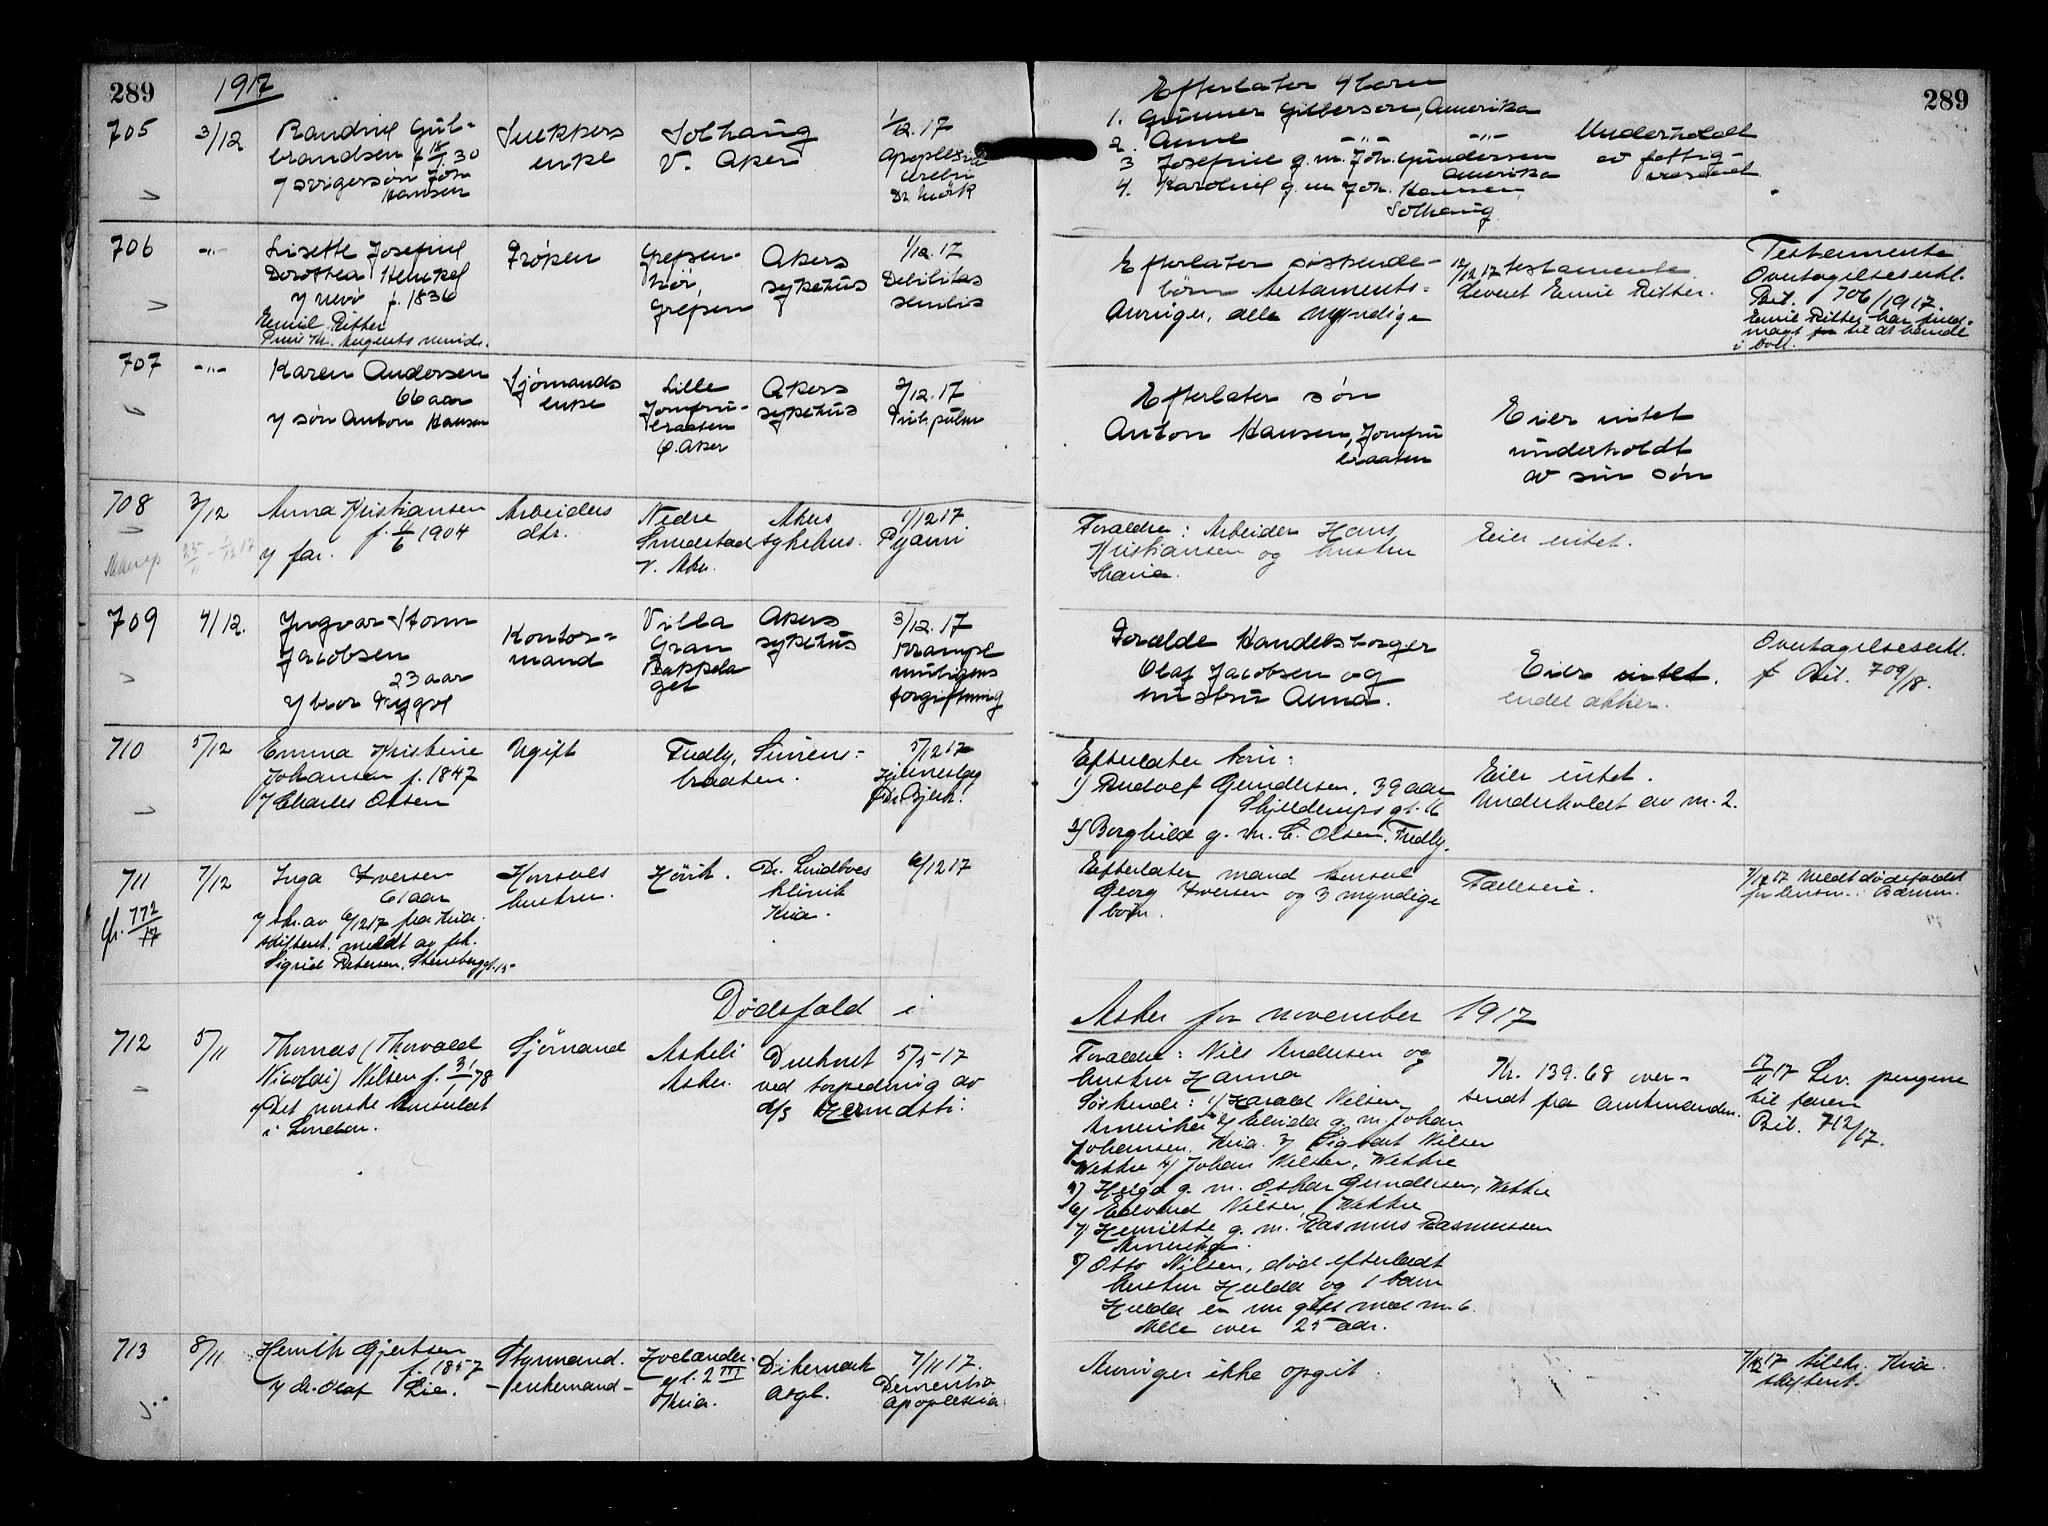 289
1917
705
3/12
Randine Gul-
brandsen f. 18/1 30
v/ svigersøn Joh.
Hansen
Snekkers
enke
Solhaug
V. Aker
1/12.17
Apoplexia
cerebri
Dr. Mørk
706
-"-
Lisette Josefine
Dorothea Henkel
v/ nevø f. 1836
Emil Ritter
Frøken
Grefsen-
Grefsen
Akers
sykehus
1/12.17
Debilitas
senilis
707
-"-
Karen Andersen
66 aar
v/ søn Anton Hansen
Sjømands
enke
Lille
Jomfru-
braaten
Ø. Aker
Akers
sykehus
2/12.17
Tub. pulm
708
3/12
Anna Kristiansen
f. 11/6 1904
v/ far.
Arbeiders
dtr.
Nedre
Smedstad
V. Aker
Akers
sykehus.
1/12 17
Pyæmi
709
4/12.
Yngvar Storm
Jacobsen
23 aar
v/ bror Trygve
Kontor-
mand
Villa
Gran
Bakkela
get
Akers
sykehus
3/12.17
Krampe
muligens
forgiftning
710
5/12
Emma Kristine
Johansen f. 1847
v/ Charles Olsen
Ugift
Fredly, Simens-
braaten.
5/12 17
Hjerneslag
711
cfr. 772/17
7/12
Inga Iversen
61 aar
v/ skr. av 6/12 17 fra Kria.
skifteret. meldt av frk.
Sigrid Petersen, Stensberggt. 15
Konsuls
hustru.
Høvik.
Dr. Lindboes
klinik
Kria.
6/12 17
Dødsfald i
712
5/11
Thomas (Thorvald
Nicolai) Nilsen f. 31/1 78
v/ Det norske konsulat
i London.
Sjømand
Askeli
Asker.
Druknet 5/5-17
ved torpedering av
713
8/11
Henrik Gjertsen
f. 1857
v/ dr. Olaf Lie.
Styrmand.
- enkemand -
gt. 2 III
Kria.
Dikemark
Asyl.
7/11 17.
Dementia
Apoplexia
289
Efterlater 4 barn
1. Gunner Gilberson, Amerika
2. Anne -"- -"-
3 Josefine g. m. Joh. Gundersen
Amerika
4. Karoline g. m. Joh. Hansen,
Solhaug
Underholdt
av fattig-
væsenet
Efterlater søskende-
børn testaments-
Arvinger, alle myndige
12/12 17 testamente
leveret Emil Ritter.
Testamente
Overtagelseserkl.
Bil. 706/1917.
Emil Ritter har fuld-
magt til at handle
i boet.
Efterlater søn
Anton Hansen, Jomfru
braaten
Eier intet
underholdt
av sin søn
Forældre: Arbeider Hans
Kristiansen og hustru
Maria.
Eier intet.
Forældre Handelsborger
Olaf Jacobsen og
hustru Anna.
Eier intet.
endel aktier.
Overtagelseserkl.
f Bil. 709/18.
Efterlater barn:
1) Rudolf Gundersen, 39 aar
2) Borghild g. m. C. Olsen, Fredly.
Eier intet.
Underholdt av nr. 2.
Efterlater mand konsul
Georg Iversen og 3 myndige
børn.
Fælleseie.
7/12 17 Meldt dødsfaldet
Asker for november 1917
Forældre: Nils Andersen og
hustru Hanna
Søskende: 1) Harald Nilsen
Amerika 2) Elvida g. m. Johan
Johansen, Kria. 3) Sigvart Nilsen
Vettre 4) Johan Nilsen, Vettre
5) Helga g. m. Oskar Gundersen, Vettre
6) Edvard Nilsen, Vettre
7) Henriette g. m. Rasmus Rasmussen
Amerika.
8) Otto Nilsen, død efterladt
hustru Hulda og 1 barn
Hulda er nu gift med nr. 6.
Alle over 25 aar.
Kr. 139.68 over-
sendt fra Amtmanden.
17/11 17 Lev. pengene
til faren
Bil. 712/17.
Arvinger ikke opgit
7/12 17 tilskr. Kria.
skifteret.